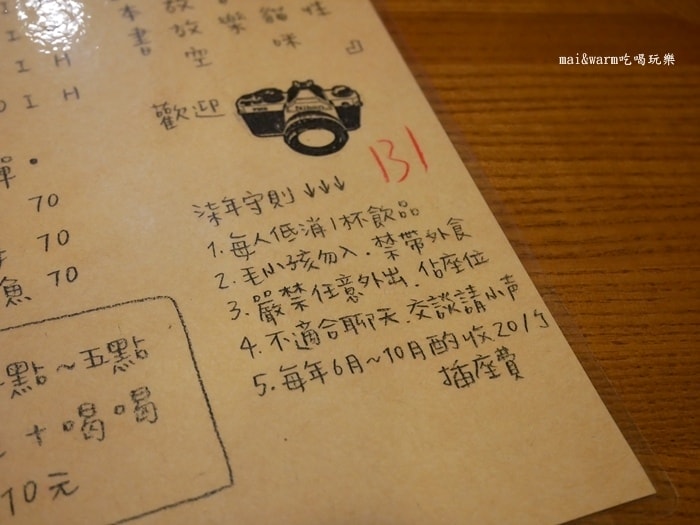 mai&warm吃喝玩樂
書放樂貓娃
空 咪
I H
O I H
歡迎
131
單。
70
70
魚 70
柒年守則↓↓↓
1. 每人低消1杯飲品
2. 毛小孩勿入. 禁帶外食
3. 嚴禁任意外出. 佔座位
4. 不適合聊天. 交談請小声
5. 每年6月~10月酌收20/勺
插座費
點~五點
+喝喝
10元